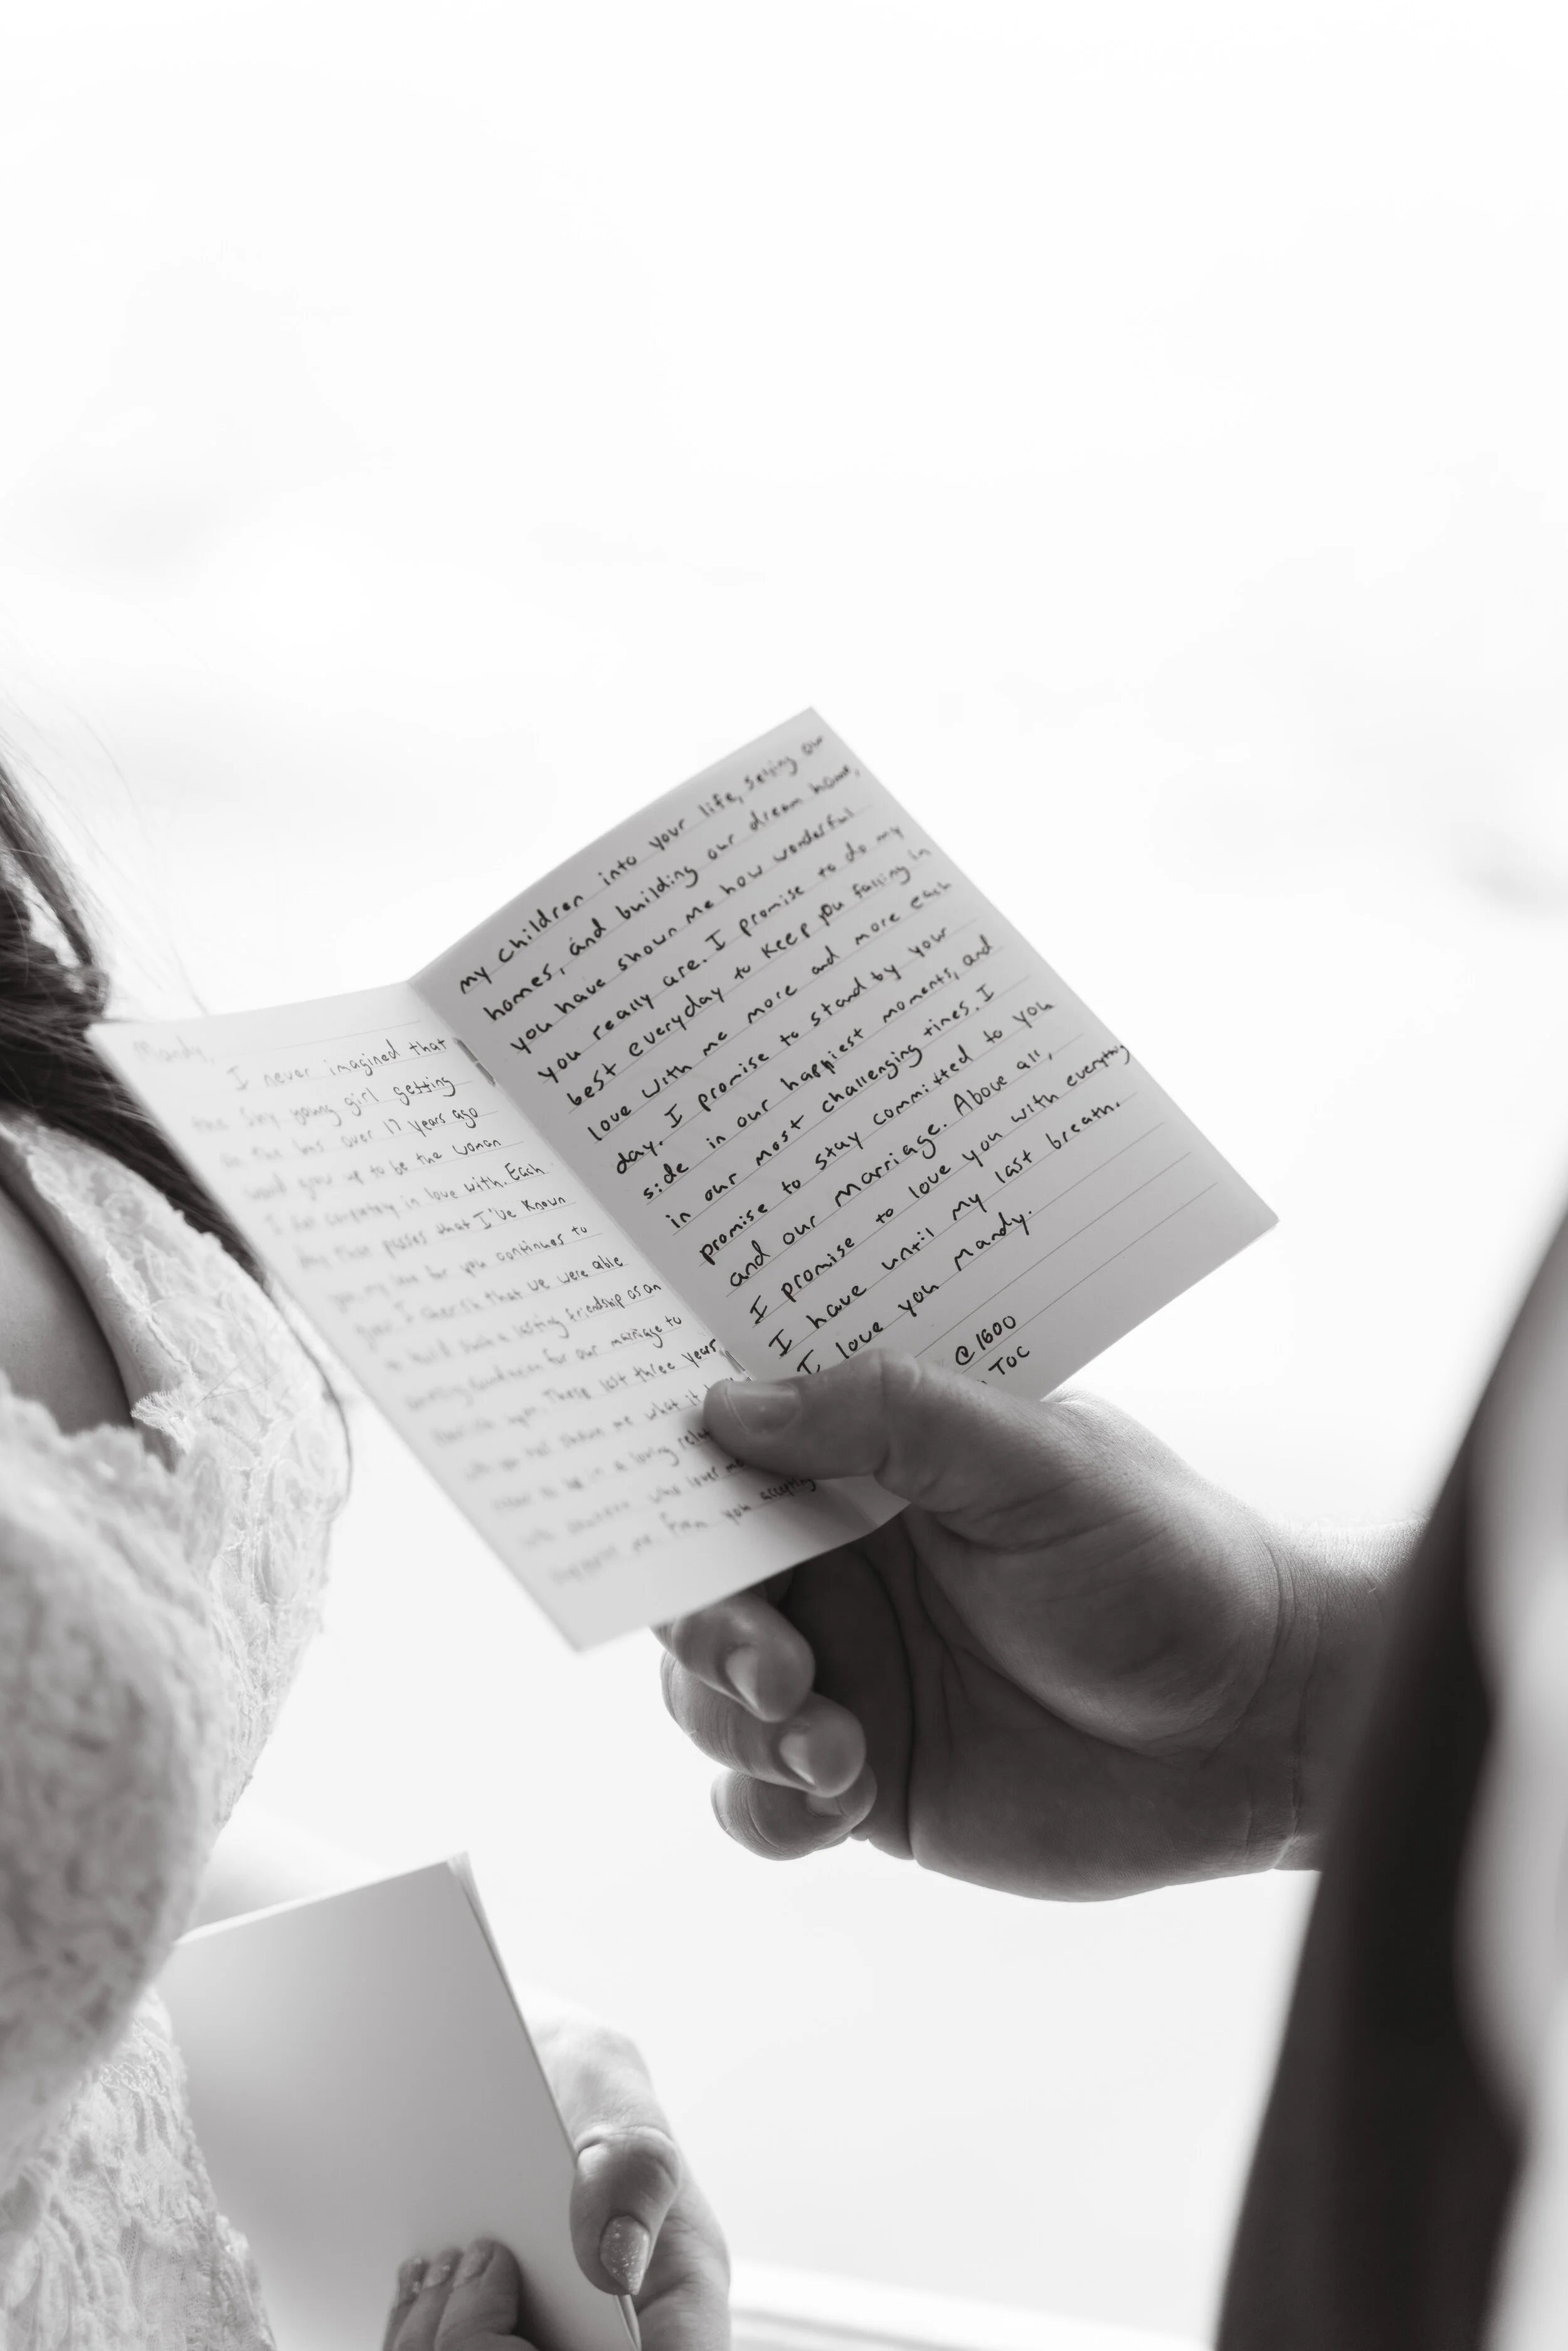 Mandy,
I never imagined that
the shy young girl getting
on the bus over 17 years ago
would grow up to be the woman
in love with. Each
day that passes that I've known
you my love for you continues to
grow. I cherish that we were able
to build such a lasting friendship as an
foundation for our marriage to
upon. These last three years
with you has shown me what it
to be in a loving
with someone who loves me
me. From you accepting
my children into your life, selling our
homes, and building our dream home,
you have shown me how wonderful
you really are. I promise to do my
best everyday to keep you falling in
love with me more and more each
day. I promise to stand by your
side in our happiest moments, and
in our most challenging times. I
promise to stay committed to you
and our marriage. Above all,
I promise to love you with everything
I have until my last breath.
I love you Mandy.
@1600
TOC